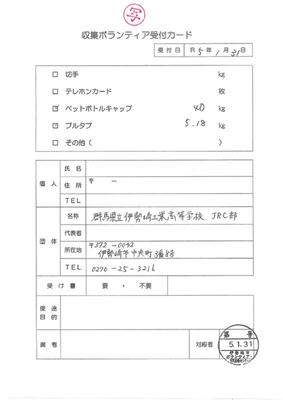 写
収集ボランティア受付カード
受付日 R 5年 1月 31日
□ 切手 kg
□ テレホンカード 枚
☑ ペットボトルキャップ 40 kg
☑ プルタブ 5.18 kg
□ その他( )
個人
氏名
住所 〒 －
TEL
団体
名称 群馬県立伊勢崎工業高等学校 JRC部
代表者
所在地 〒372-0042
伊勢崎市中央町3番8号
TEL 0270-25-3216
受け書 要・不要
使途
目的
備考
対応者
5.1.31
伊勢崎市
ボランティア